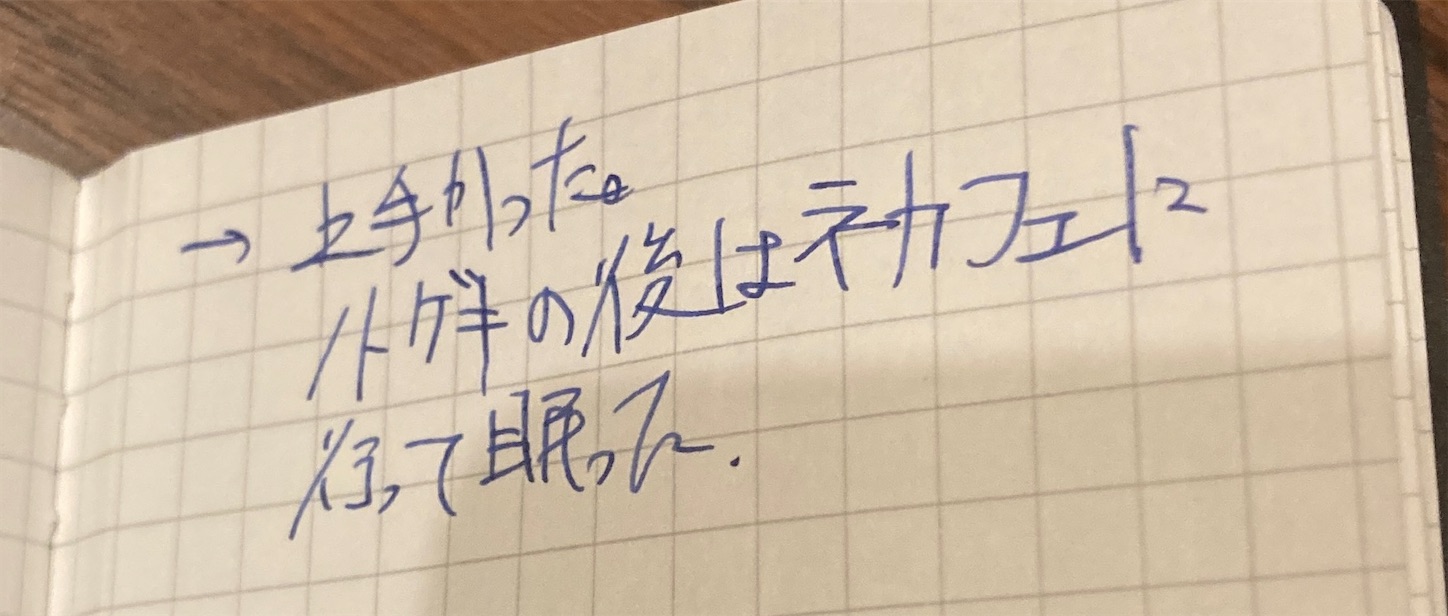 → 上手かった。
小ゲキの後はネカフェに
行って眠った.